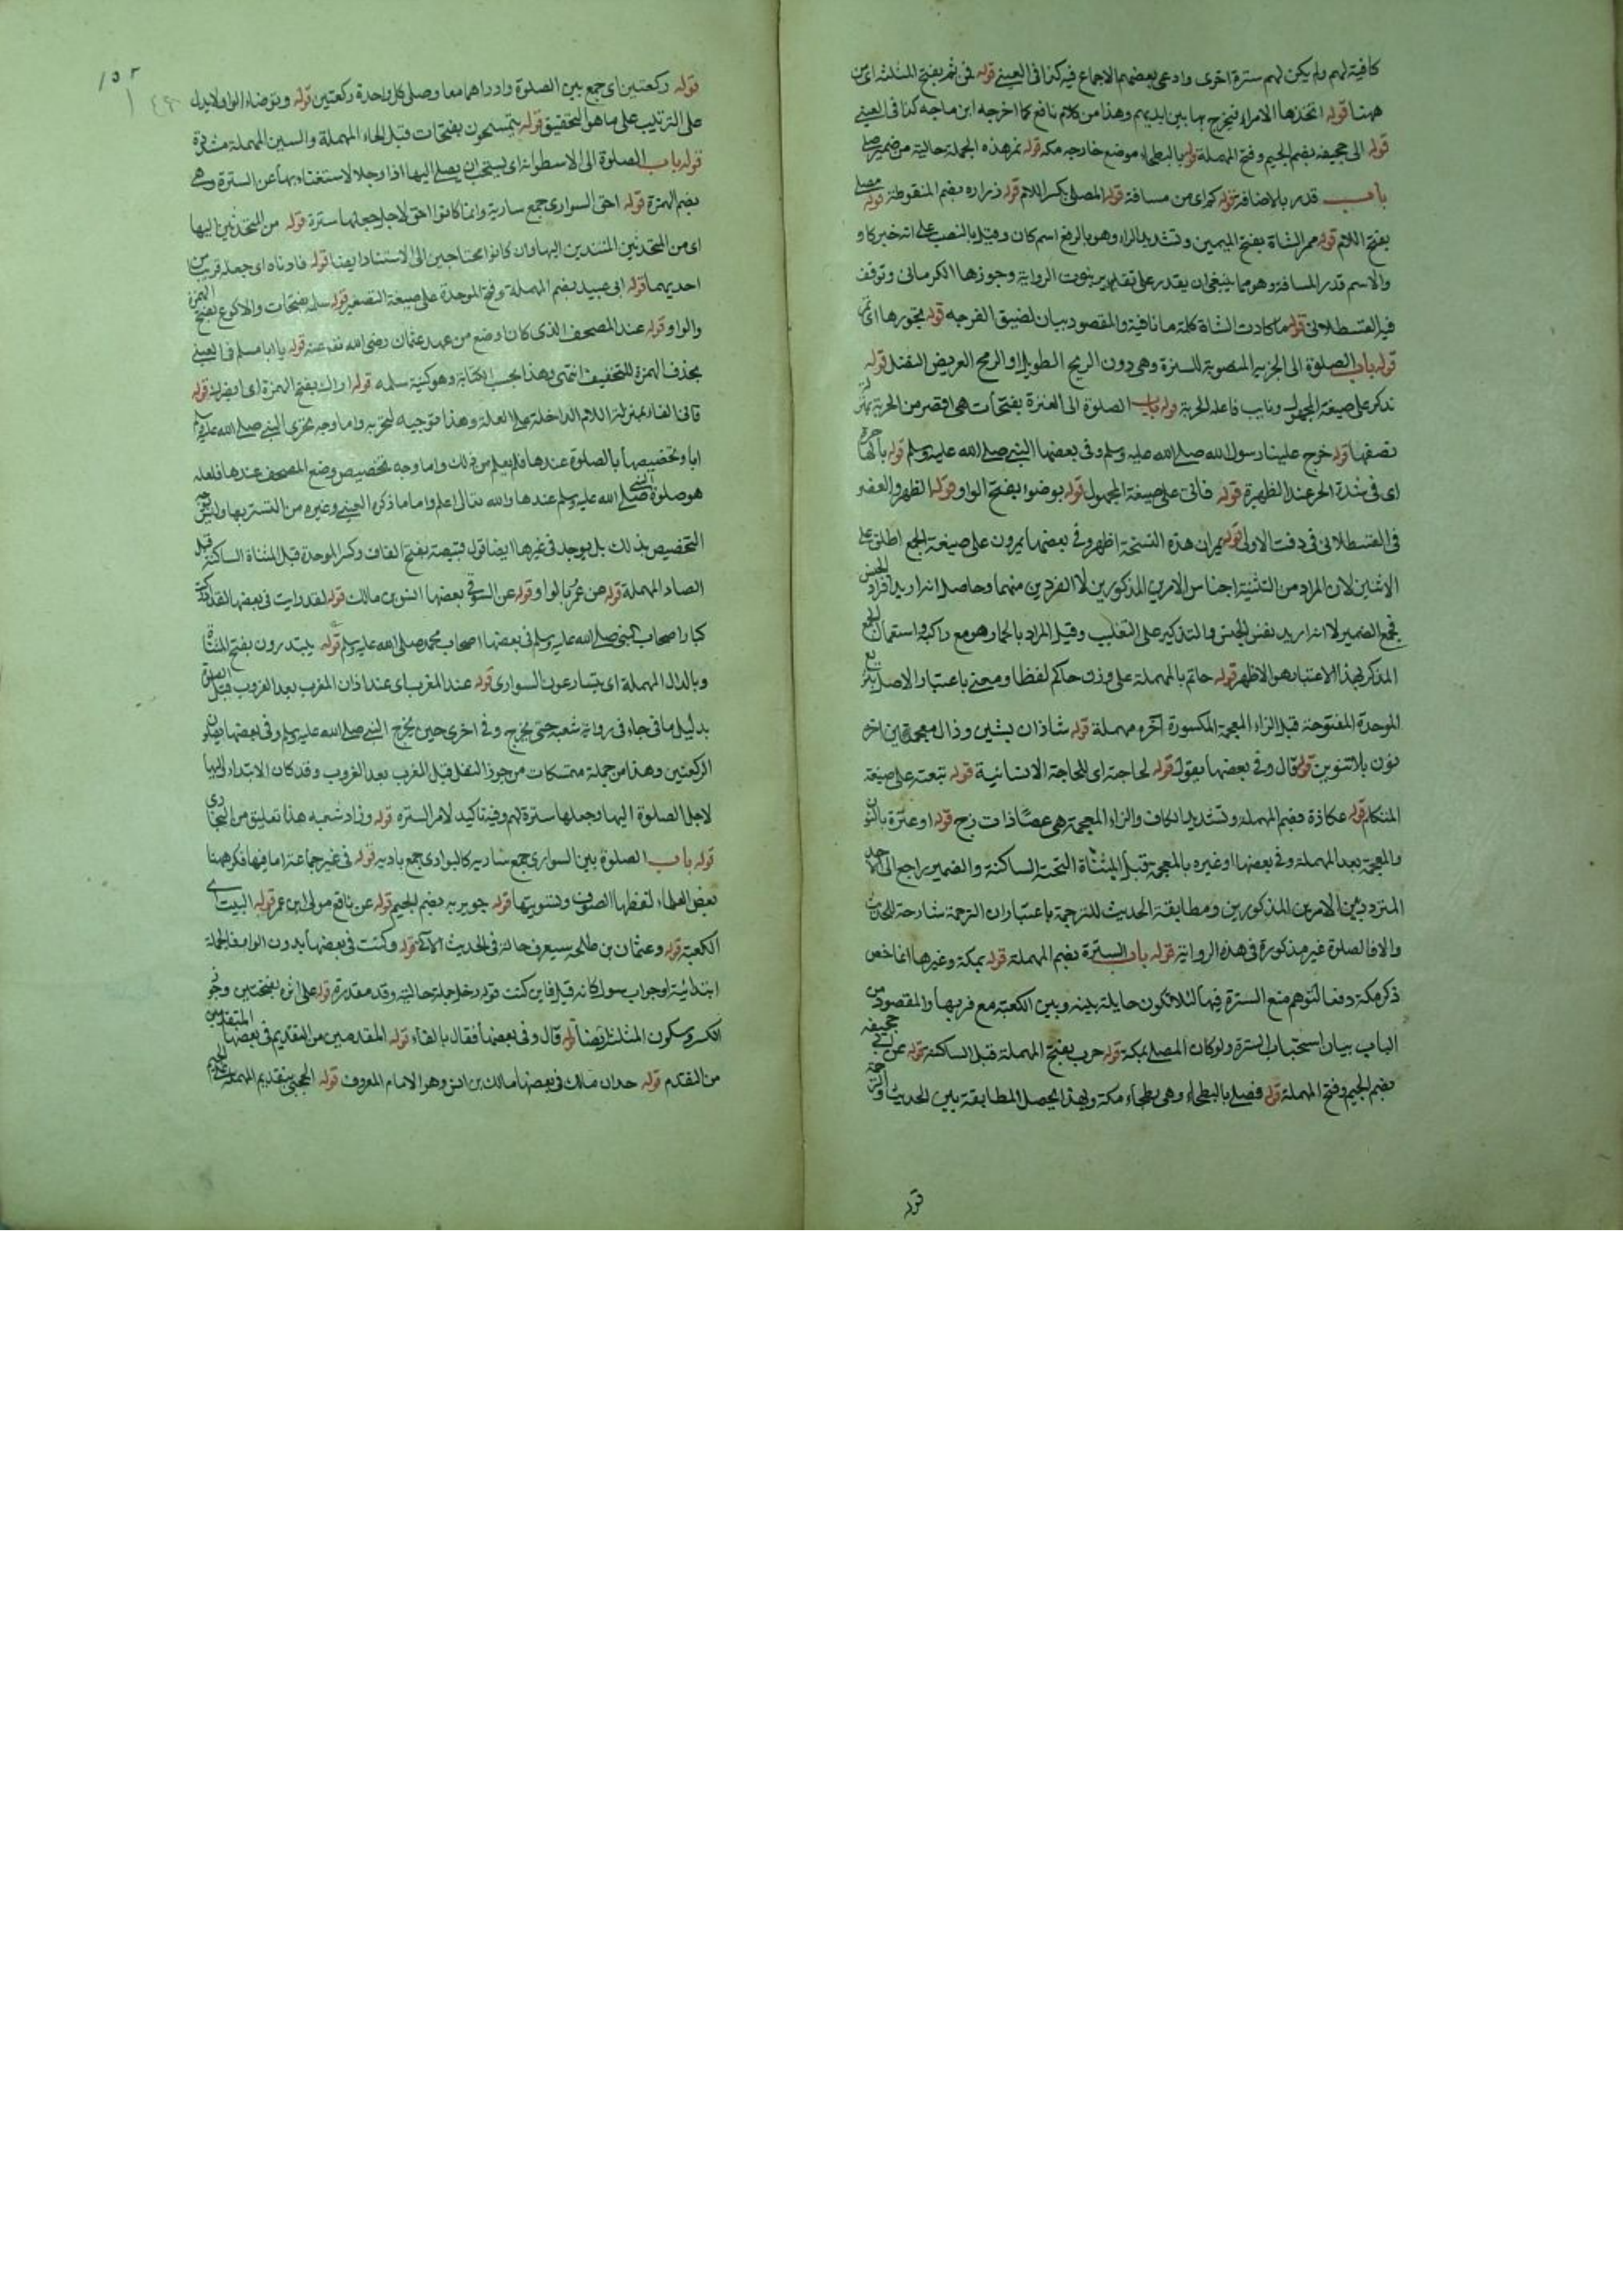 كافية لهم ولم يكن لهم سترة اخرى وادعى بعضهم الاجماع فيه كذا فى العينى قوله فمن ثم بفتح المثلثة اى من
ههنا قوله اتخذها الامراء فيخرج بها بين ايديهم وهذا من كلام نافع كما اخرجه ابن ماجه كذا فى العينى
قوله الى جحيفه بضم الجيم وفتح المهملة قوله بالبطحاء موضع خارجه مكه قوله تمر هذه الجملة حالية من ضمير صلى
باب قدر بالاضافة قوله كم اى من مسافة قوله المصلى بكسر اللام قوله زراره بضم المنقوطة قوله مصلى
بفتح اللام قوله ممر الشاة بفتح الميمين وتشديد الراء وهو بالرفع اسم كان وقيل بالنصب على انه خبر كان و
والاسم قدر المسافة وهو مما ينبغى ان يقدر على تقدير ثبوت الرواية وجوزها الكرمانى وتوقف
فيه القسطلانى قوله ما كادت الشاة كلمة ما نافية والمقصود بيان لضيق الفرجه قوله تجوزها اى
قوله باب الصلوة الى الحربة المنصوبة للسترة وهى دون الرمح الطويل او الرمح العريض النصل قوله
تركز على صيغة المجهول ونايب فاعله الحربة قوله باب الصلوة الى العنزة بفتحات هى اقصر من الحربة
نصفها قوله خرج علينا رسول الله صلى الله عليه وسلم وفى بعضها النبى صلى الله عليه وسلم قوله بالهاجرة
اى فى شدة الحر عند الظهيرة قوله فاتى على صيغة المجهول قوله بوضوء بفتح الواو قوله الظهر والعصر
فى القسطلانى فى وقت الاولى قوله يمران هذه النسخة اظهر وفى بعضها يمرون على صيغة الجمع اطلق على
الاثنين لان المراد من التثنية اجناس الامرين المذكورين لا الفردين منهما وحاصله انه اريد افراد الجنس
فجمع الضمير لا انه اريد نفس الجنس والتذكير على التغليب وقيل المراد بالحمار هو مع راكبه واستعمال الجمع
المذكر بهذا الاعتبار هو الاظهر قوله حاتم بالمهملة على وزن حاكم لفظا ومعنى باعتبار الاصل
الموحدة المفتوحة قبل الزاء المعجمة المكسورة اخره مهملة قوله شاذان بشين وذال معجمتين اخره
نون بلا تنوين قوله قال وفى بعضها يقول قوله لحاجته اى للحاجة الانسانية قوله تبعته على صيغة
المتكلم قوله عكازة بضم المهملة وتشديد الكاف والزاء المعجمة هى عصا ذات زج قوله او عنزة بالنون
والمعجمة بعد المهملة وفى بعضها او غيره بالمعجمة قبل المثناة التحتية الساكنة والضمير راجع الى الاحد
المتردد بين الامرين المذكورين ومطابقة الحديث للترجمة باعتبار ان الترجمة شارحة للحديث
والا فالصلوة غير مذكورة فى هذه الرواية قوله باب السترة بضم المهملة قوله بمكة وغيرها انما خص
ذكر مكة دفعا لتوهم منع السترة فيها لئلا تكون حايلة بينه وبين الكعبة مع قربها والمقصود من
الباب بيان استحباب السترة ولو كان المصلى بمكة قوله حرب بفتح المهملة قبل الساكنة قوله عن ابى جحيفه
بضم الجيم وفتح المهملة قوله فصلى بالبطحاء وهى بطحاء مكة وبهذا يحصل المطابقة بين الحديث والترجمة
قوله
١٥٢
قوله ركعتين اى جمع بين الصلوة واداهما معا وصلى كل واحدة ركعتين قوله وتوضاء الواو لا يدل
على الترتيب على ما هو التحقيق قوله يتمسحون بفتحات قبل الحاء المهملة والسين المهملة مشددة
قوله باب الصلوة الى الاسطوانة اى يستحب ان يصلى اليها اذا وجد لاستغناء بها عن السترة وهى
بضم الهمزة قوله احق السوارى جمع سارية وانما كانوا احق لاجل جعلها سترة قوله من المتحدثين اليها
اى من المتحدثين المستندين اليها وان كانوا محتاجين الى الاستناد ايضا قوله فادناه اى جعله قريبا من
احديهما قوله ابى عبيد بضم المهملة وفتح الموحدة على صيغة التصغير قوله سلمه بفتحات والاكوع بفتح الهمزة
والواو قوله عند المصحف الذى كان وضع من عهد عثمان رضى الله عنه قوله يا ابا مسلم فى العينى
بحذف الهمزة للتخفيف انتهى وهذا بحسب الكتابة وهو كنية سلمه قوله اراك بفتح الهمزة اى ابصرك قوله
فانى الفاء بمنزلة اللام الداخلة على العلة وهذا توجيه لتحريه واما وجه تحرى النبى صلى الله عليه وسلم
اياه وتخصيصها بالصلوة عندها فلم يعلم من ذلك واما وجه تخصيص وضع المصحف عندها فلعله
هو صلوة النبى صلى الله عليه وسلم عندها والله تعالى اعلم واما ما ذكره العينى وغيره من التستر بها وليس وجه
التخصيص بذلك بل يوجد فى غيرها ايضا قوله قبيصة بفتح القاف وكسر الموحدة قبل المثناة الساكنة قبل
الصاد المهملة قوله عن عمرو بالواو قوله عن انس وفى بعضها انس بن مالك قوله لقد رايت فى بعضها لقد ادركت
كبار اصحاب النبى صلى الله عليه وسلم فى بعضها اصحاب محمد صلى الله عليه وسلم قوله يبتدرون بفتح المثناة
وبالدال المهملة اى يتسارعون السوارى قوله عند المغرب اى عند اذان المغرب بعد الغروب قبل الصلوة
بدليل ما فى جاء فى رواية شعبة حتى يخرج وفى اخرى حين يخرج النبى صلى الله عليه وسلم وفى بعضها يصلون
الركعتين وهذا من جملة متمسكات من جوز النفل قبل المغرب بعد الغروب وقد كان الابتداء اليها
لاجل الصلوة اليها وجعلها سترة لهم وفيه تاكيد لامر السترة قوله وزاد شعبه هذا تعليق من البخارى
قوله باب الصلوة بين السوارى جمع سارية كالبوادى جمع بادية قوله فى غير جماعة اما فيها فكرهها
بعض العلماء لقطعها الصفوف وتسويتها قوله جويريه بضم الجيم قوله عن نافع مولى ابن عمر قوله البيت اى
الكعبة قوله وعثمان بن طلحه سيعرف حاله فى الحديث الآتى قوله وكنت فى بعضها بدون الواو فالجملة
ابتدائية او جواب سوال كانه قيل فاين كنت قوله دخل جملة حالية وقد مقدرة قوله على اثره بفتحتين وجوز
الكسر وسكون المثلثة ايضا قوله قال وفى بعضها فقال بالفاء قوله المقدمين من التقديم فى بعضها المتقدمين
من التقدم قوله حدثنا مالك فى بعضها مالك بن انس وهو الامام المعروف قوله الحجبى بتقديم المهملة على الجيم